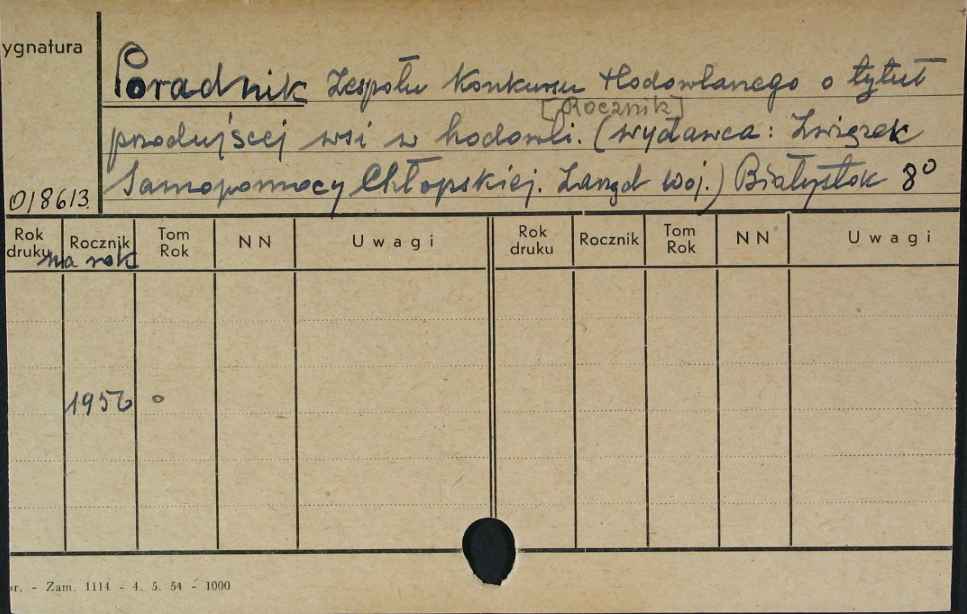 ygnatura
Poradnik Zespołu Konkursu Hodowlanego o tytuł
[Rocznik]
przodującej wsi w hodowli. (wydawca: Związek
Samopomocy Chłopskiej. Zarząd woj.) Białystok 8°
018613.
Rok druku Rocznik Tom Rok NN Uwagi Rok druku Rocznik Tom Rok NN Uwagi
na rok
1956 °
r. - Zam. 1114 - 4. 5. 54 - 1000